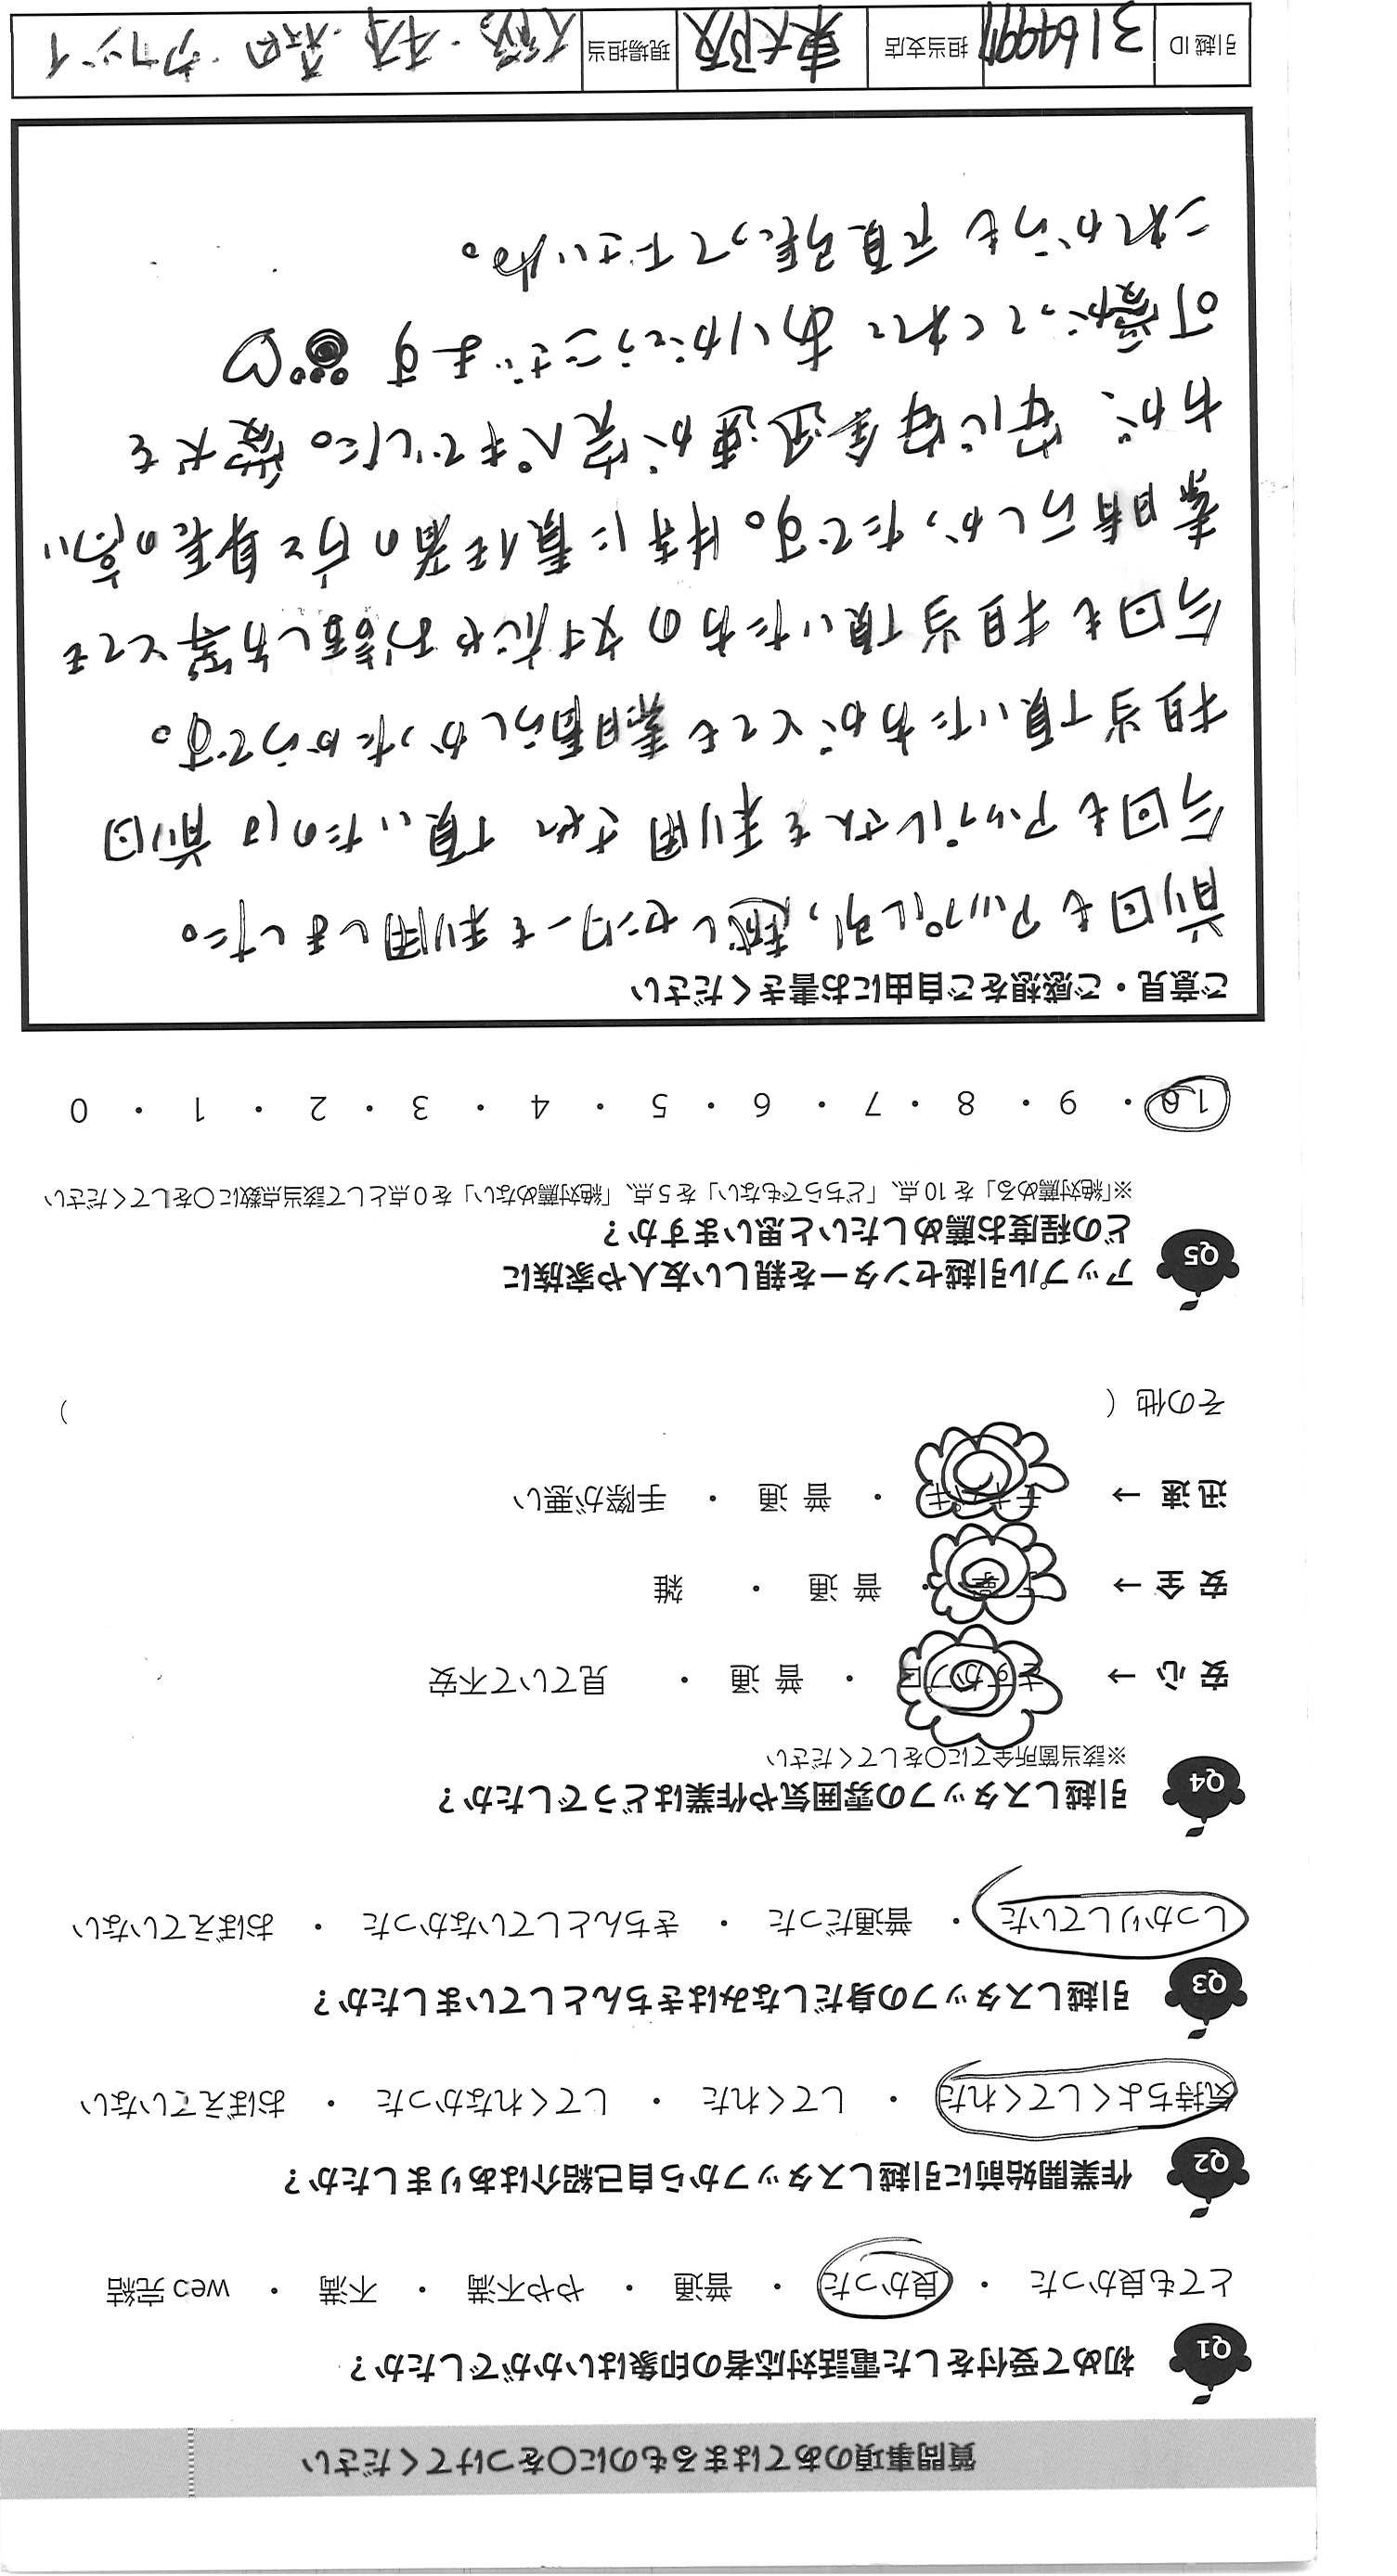 質問事項のあてはまるものに〇をつけてください
Q1 初めて受付をした電話対応者の印象はいかがでしたか？
とても良かった ・ 良かった ・ 普通 ・ やや不満 ・ 不満 ・ web 完結
Q2 作業開始前に引越しスタッフから自己紹介はありましたか？
気持ちよくしてくれた ・ してくれた ・ してくれなかった ・ おぼえていない
Q3 引越しスタッフの身だしなみはきちんとしていましたか？
しっかりしていた ・ 普通だった ・ きちんとしていなかった ・ おぼえていない
Q4 引越しスタッフの雰囲気や作業はどうでしたか？
※該当箇所全てに〇をしてください
安 心 → さすがプロ ・ 普 通 ・ 見ていて不安
安 全 → 丁 寧 ・ 普 通 ・ 雑
迅 速 → テキパキ ・ 普 通 ・ 手際が悪い
その他（ ）
Q5 アップル引越センターを親しい友人や家族に
どの程度お薦めしたいと思いますか？
※「絶対薦める」を 10 点、「どちらでもない」を 5 点、「絶対薦めない」を 0 点として該当点数に〇をしてください
10 ・ 9 ・ 8 ・ 7 ・ 6 ・ 5 ・ 4 ・ 3 ・ 2 ・ 1 ・ 0
ご意見・ご感想をご自由にお書きください
前回もアップル引っ越しセンターを利用しました。
今回もアップルさんを利用させて頂いたのは前回
担当頂いた方がとても素晴らしかったからです。
今回も担当頂いた方の対応やお話し方等とても
素晴らしかったです。特に責任者の方と身長の高い
方が、安心安全迅速が完ペキでした。愛犬を
可愛がってくれて ありがとうございます ♡
これからも頑張って下さいね。
引越 ID 3164991 担当支店 東大阪 現場担当